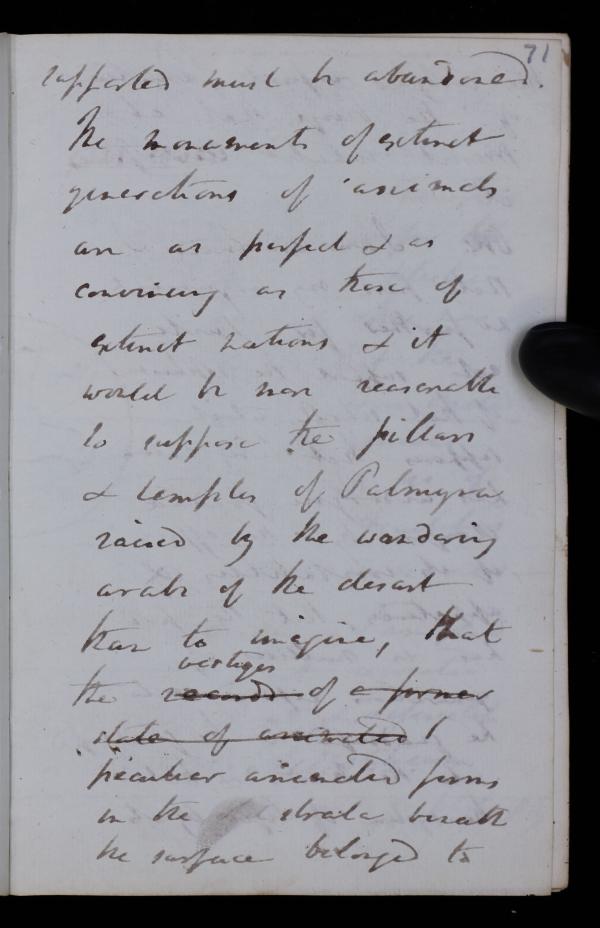 71
supported must be abandoned.
The monuments of extinct
generations of animals
are as perfect & as
convincing as those of
extinct nations & it
would be more reasonable
to suppose the pillars
& temples of Palmyra
raised by the wandering
arabs of the desart
than to imagine, that
vestiges
the records of a former
state of animated
peculiar animated forms
in the strata beneath
the surface belonged to